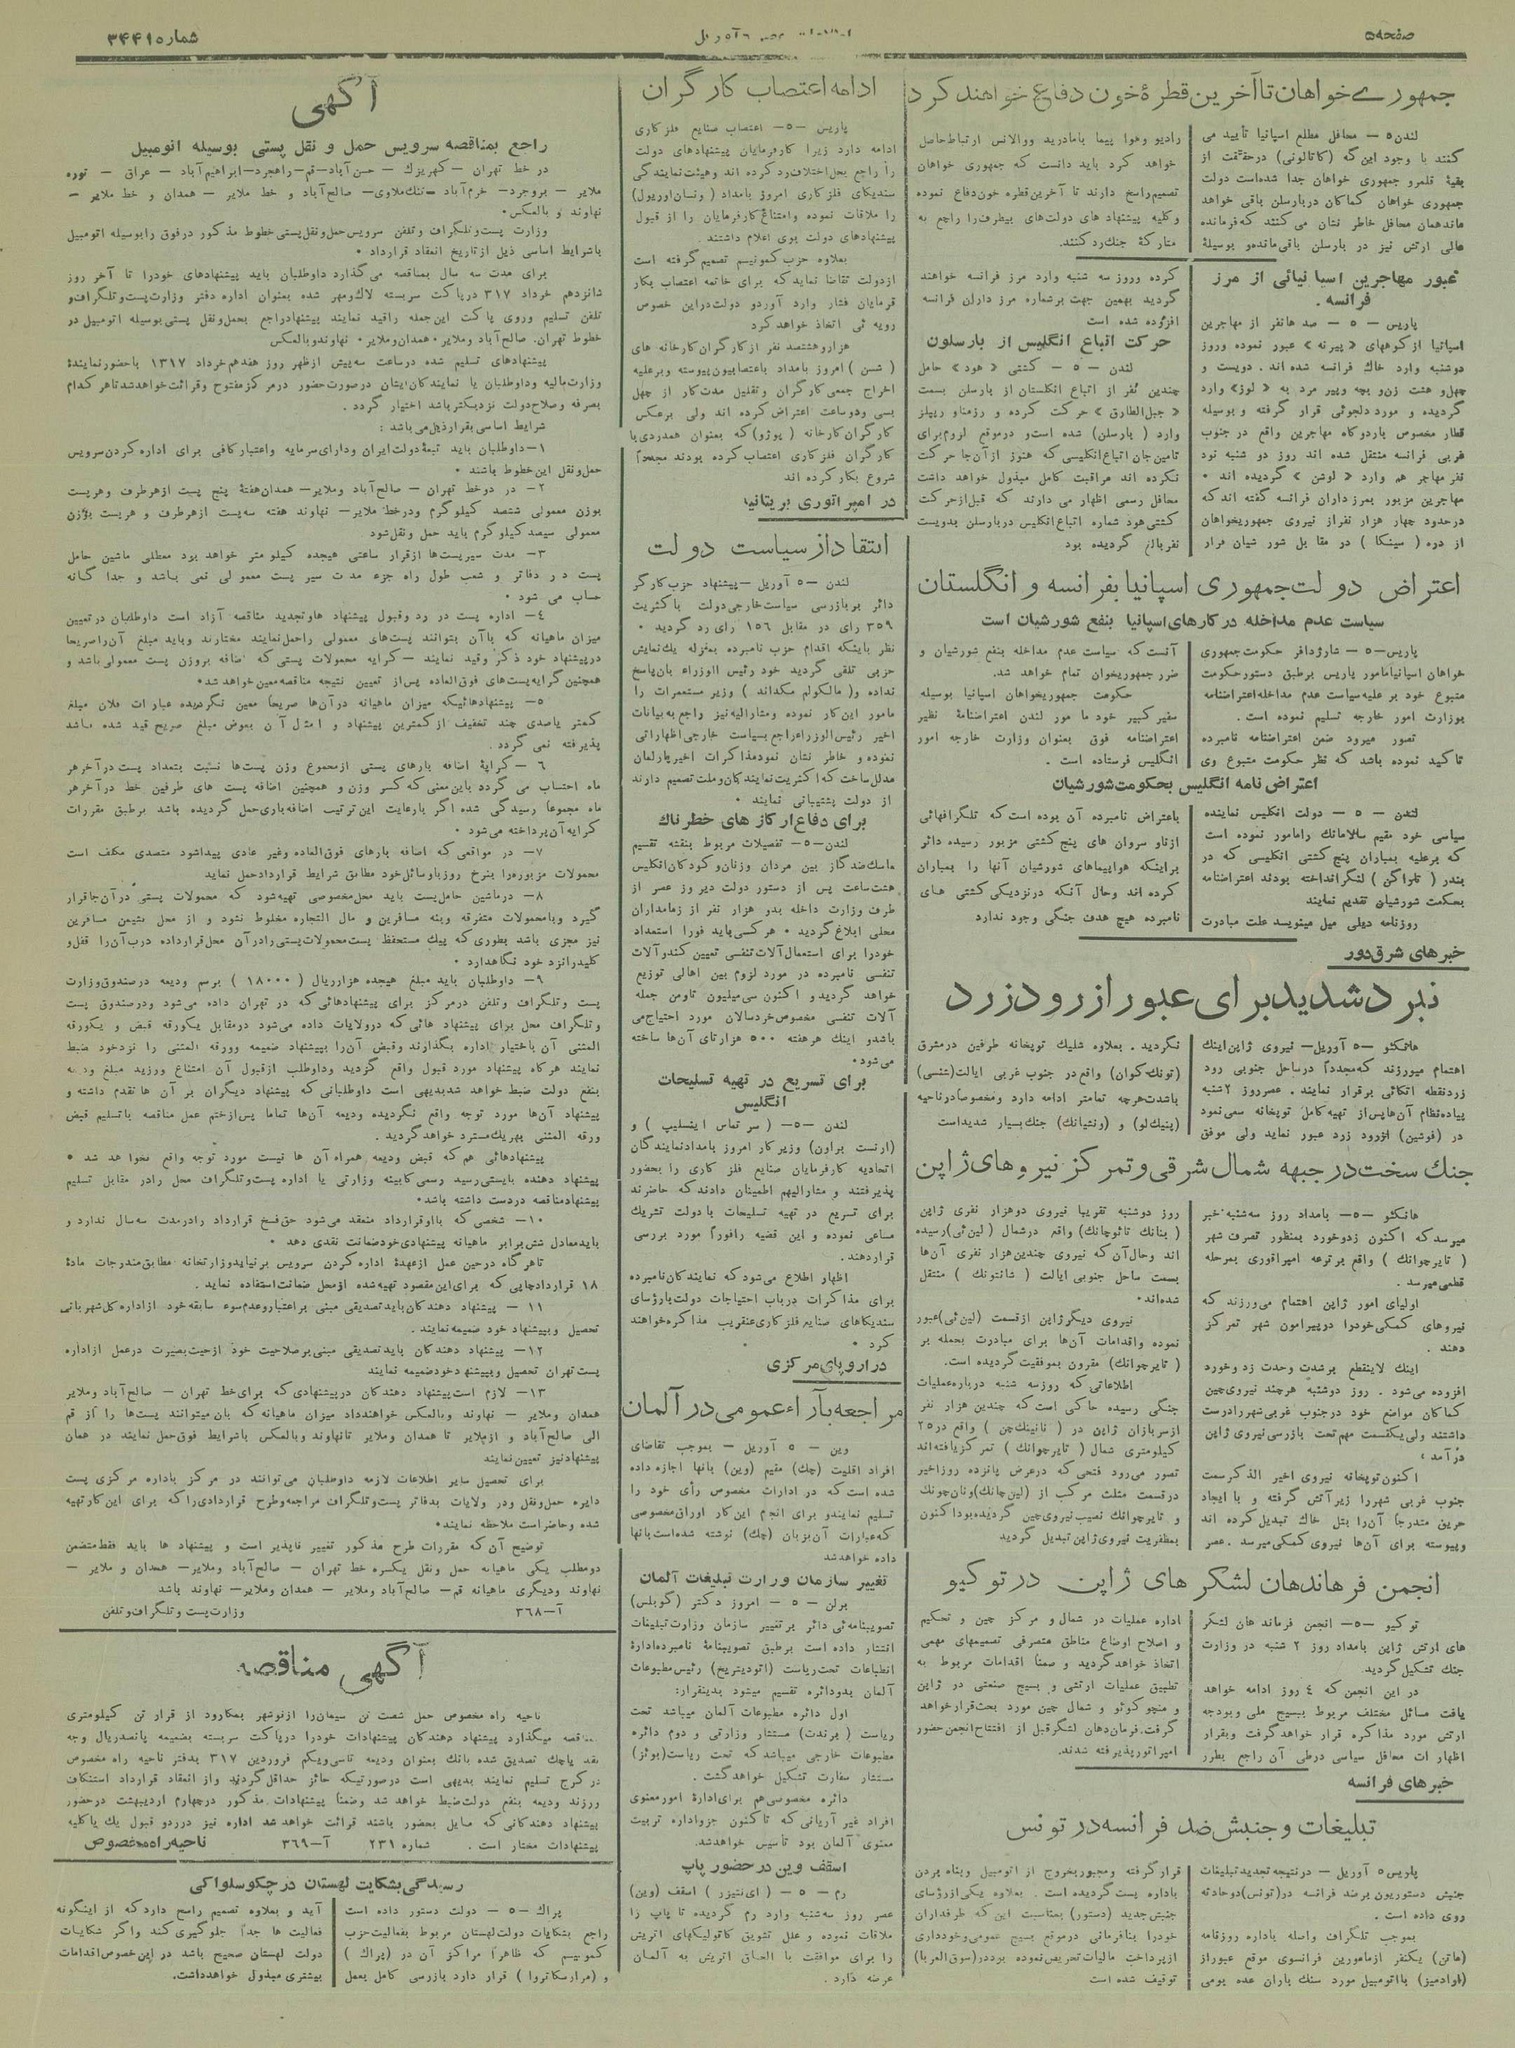 صفحه۵
شماره ۳۴۴۱
جمهوری خواهان تا آخرین قطرهٔ خون دفاع خواهند کرد
لندن ۵ – محافل مطلع اسپانیا تأیید می
کنند با وجود این که (کاتالونی) درحقیقت از
بقیهٔ قلمرو جمهوری خواهان جدا شده‌است دولت
جمهوری خواهان کماکان دربارسلن باقی خواهد
ماند همان محافل خاطر نشان می کنند که فرمانده
عالی ارتش نیز در بارسلن باقی مانده و بوسیلهٔ
رادیو وهوا پیما بامادرید ووالانس ارتباط حاصل
خواهد کرد باید دانست که جمهوری خواهان
تصمیم راسخ دارند تا آخرین قطره خون دفاع نموده
وکلیه پیشنهاد های دولت‌های بیطرف را راجع به
متارکهٔ جنك رد کنند.
عبور مهاجرین اسپانیائی از مرز
فرانسه
پاریس – ۵ – صد ها نفر از مهاجرین
اسپانیا از کوههای «پیرنه» عبور نموده وروز
دوشنبه وارد خاك فرانسه شده اند. دویست و
چهل و هشت زن و بچه وپیر مرد به «لوز» وارد
گردیده و مورد دلجوئی قرار گرفته و بوسیله
قطار مخصوص باردوگاه مهاجرین واقع در جنوب
غربی فرانسه منتقل شده اند روز دو شنبه نود
نفر مهاجر هم وارد «لوشن» گردیده اند.
مهاجرین مزبور بمرز داران فرانسه گفته اند که
درحدود چهار هزار نفر از نیروی جمهوریخواهان
از دره (سینکا) در مقابل شور شیان فرار
کرده وروز سه شنبه وارد مرز فرانسه خواهند
گردید بهمین جهت برشماره مرز داران فرانسه
افزوده شده است
حرکت اتباع انگلیس از بارسلون
لندن – ۵ – کشتی «هود» حامل
چندین نفر از اتباع انگلستان از بارسلن بسمت
«جبل‌الطارق» حرکت کرده و رزمناو ریپلز
وارد (بارسلن) شده است و درموقع لزوم برای
تامین جان اتباع انگلیسی که هنوز از آن‌جا حرکت
نکرده اند مراقبت کامل مبذول خواهد داشت
محافل رسمی اظهار می دارند که قبل از حرکت
کشتی هود شماره اتباع انگلیس دربارسلن بدویست
نفر بالغ گردیده بود
اعتراض دولت جمهوری اسپانیا بفرانسه و انگلستان
سیاست عدم مداخله در کارهای اسپانیا بنفع شورشیان است
پاریس–۵ – شارژدافر حکومت جمهوری
خواهان اسپانیا مأمور پاریس برطبق دستور حکومت
متبوع خود بر علیه سیاست عدم مداخله اعتراضنامهٔ
بوزارت امور خارجه تسلیم نموده است.
تصور میرود ضمن اعتراضنامه نامبرده
تأکید نموده باشد که نظر حکومت متبوع وی
آنست که سیاست عدم مداخله بنفع شورشیان و
ضرر جمهوریخوان تمام خواهد شد.
حکومت جمهوریخواهان اسپانیا بوسیله
سفیر کبیر خود ما مور لندن اعتراضنامهٔ نظیر
اعتراضنامه فوق بعنوان وزارت خارجه امور
انگلیس فرستاده است.
اعتراض نامه انگلیس بحکومت شورشیان
لندن – ۵ – دولت انگلیس نماینده
سیاسی خود مقیم سالامانك رامأمور نموده است
که برعلیه بمباران پنج کشتی انگلیسی که در
بندر (تاراگن) لنگر انداخته بودند اعتراضنامه
بحکمت شورشیان تقدیم نمایند
روزنامه دیلی میل مینویسد علت مبادرت
باعتراض نامبرده آن بوده است که تلگرافهائی
از ناو سروان های پنج کشتی مزبور رسیده دائر
براینکه هواپیماهای شورشیان آنها را بمباران
کرده اند وحال آنکه درنزدیکی کشتی های
نامبرده هیچ هدف جنگی وجود ندارد
خبرهای شرق دور
نبرد شدید برای عبور از رود زرد
هانکئو –۵ آوریل– نیروی ژاپن اینك
اهتمام میورزند که مجدداً درساحل جنوبی رود
زرد نقطه اتکائی برقرار نمایند. عصر روز ۲شنبه
پیاده نظام آن‌ها پس از تهیه کامل توپخانه سعی نمود
در (فوشین) از رود زرد عبور نماید ولی موفق
نگردید. بعلاوه شلیك توپخانه طرفین درمشرق
(تونك کوان) واقع در جنوب غربی ایالت (شنسی)
باشدت هرچه تمامتر ادامه دارد ومخصوصاً در ناحیه
(پنیك لو) و (ونتیانك) جنك بسیار شدید است
جنك سخت در جبهه شمال شرقی و تمرکز نیروهای ژاپن
هانکئو –۵– بامداد روز سه‌شنبه خبر
میرسد که اکنون زدوخورد بمنظور تصرف شهر
(تایرچوانك) واقع برترعه امپراتوری بمرحله
قطعی میرسد.
اولیای امور ژاپن اهتمام می‌ورزند که
نیروهای کمکی خود را درپیرامون شهر تمرکز
دهند.
اینك لاینقطع بر شدت وحدت زد وخورد
افزوده می‌شود. روز دوشنبه هرچند نیروی چین
کماکان مواضع خود درجنوب غربی شهر رادرست
داشتند ولی یکقسمت مهم تحت بازرسی نیروی ژاپن
درآمد
اکنون توپخانه نیروی اخیر الذکر سمت
جنوب غربی شهر را زیر آتش گرفته و با ایجاد
حریق متدرجاً آن را بتل خاك تبدیل کرده اند
وپیوسته برای آن‌ها نیروی کمکی میرسد. عصر
روز دوشنبه تقریبا نیروی دوهزار نفری ژاپن
(بنانك تائوچانك) واقع درشمال (لین‌ئی) رسیده
اند وحال آن که نیروی چندین هزار نفری آن‌ها
بسمت ساحل جنوبی ایالت (شانتونك) منتقل
شده‌اند.
نیروی دیگر ژاپن از قسمت (لین‌ئی) عبور
نموده واقدامات آن‌ها برای مبادرت بحمله بر
(تایرچوانك) مقرون بموفقیت گردیده است.
اطلاعاتی که روز سه شنبه درباره عملیات
جنگی رسیده حاکی است که چندین هزار نفر
از سربازان ژاپن در (نانینك چن) واقع در ۲۵
کیلومتری شمال (تایرچوانك) تمرکز یافته‌اند
تصور می‌رود فتحی که درعرض پانزده روز اخیر
درقسمت مثلث مرکب از (لین چانك) ونان‌چونك
و تایرچوانك نصیب نیروی چین گردیده بود اکنون
بمظفریت نیروی ژاپن تبدیل گردید
انجمن فرماندهان لشکر های ژاپن در توکیو
توکیو –۵– انجمن فرماندهان لشکر
های ارتش ژاپن بامداد روز ۲ شنبه در وزارت
جنك تشکیل گردید.
در این انجمن که ٤ روز ادامه خواهد
یافت مسائل مختلف مربوط ببسیج ملی وبودجه
ارتش مورد مذاکره قرار خواهد گرفت وبقرار
اظهار ات محافل سیاسی درطی آن راجع بطرز
اداره عملیات در شمال و مرکز چین و تحکیم
و اصلاح اوضاع مناطق متصرفی تصمیمهای مهمی
اتخاذ خواهد گردید و ضمناً اقدامات مربوط به
تطبیق عملیات ارتشی و بسیج صنعتی در ژاپن
و منچو کوئو و شمال چین مورد بحث قرار خواهد
گرفت. فرمان‌دهان لشگر قبل از افتتاح انجمن حضور
امپراتور پذیرفته شدند.
خبرهای فرانسه
تبلیغات و جنبش ضد فرانسه در تونس
پاریس ۵ آوریل – درنتیجه تجدید تبلیغات
جنبش دستوریون برضد فرانسه در (تونس) دوحادثه
روی داده است.
بموجب تلگراف واصله باداره روزنامه
(ماتن) یکنفر از مامورین فرانسوی موقع عبور از
(اوادمیز) بااتومبیل مورد سنك باران عده بومی
قرار گرفته ومجبور بخروج از اتومبیل وپناه بردن
باداره پست گردیده است. بعلاوه یکی از رؤسای
جنبش جدید (دستور) بمناسبت این که طرفداران
خود را بنافرمانی درموقع بسیج عمومی وخودداری
از پرداخت مالیات تحریص نموده بود در (سوق العربا)
توقیف شده است
ادامه اعتصاب کارگران
پاریس –۵– اعتصاب صنایع فلز کاری
ادامه دارد زیرا کارفرمایان پیشنهادهای دولت
را راجع بحل اختلاف رد کرده اند وهیئت نمایندگی
سندیکای فلز کاری امروز بامداد (ونسان اوریول)
را ملاقات نموده وامتناع کارفرمایان را از قبول
پیشنهادهای دولت بوی اعلام داشتند.
بعلاوه حزب کمونیسم تصمیم گرفته است
از دولت تقاضا نماید که برای خاتمه اعتصاب بکار
فرمایان فشار وارد آورد و دولت دراین خصوص
رویه ئی اتخاذ خواهد کرد
هزار و هشتصد نفر از کارگران کارخانه های
(شسن) امروز بامداد باعتصابیون پیوسته وبرعلیه
اخراج جمعی کارگران وتقلیل مدت کار از چهل
بسی ودو ساعت اعتراض کرده اند ولی برعکس
کارگران کارخانه (پوژو) که بعنوان همدردی با
کارگران فلز کاری اعتصاب کرده بودند مجدداً
شروع بکار کرده اند
در امپراتوری بریتانیا
انتقاد از سیاست دولت
لندن –۵ آوریل –پیشنهاد حزب کارگر
دائر بر بازرسی سیاست خارجی دولت باکثریت
۳۵۹ رای در مقابل ۱۵٦ رای رد گردید.
نظر باینکه اقدام حزب نامبرده بمنزله یك نمایش
حزبی تلقی گردید خود رئیس الوزراء بان پاسخ
نداده و (مالکولم مکداند) وزیر مستعمرات را
مامور این کار نموده ومشارالیه نیز راجع به بیانات
اخیر رئیس الوزراء راجع بسیاست خارجی اظهاراتی
نموده و خاطر نشان نمود مذاکرات اخیر پارلمان
مدلل ساخت که اکثریت نمایندکان وملت تصمیم دارند
از دولت پشتیبانی نمایند.
برای دفاع از گاز های خطرناك
لندن–۵– تفصیلات مربوط بنقشه تقسیم
ماسك ضد گاز بین مردان وزنان و کودکان انگلیس
هشت ساعت پس از دستور دولت دیروز عصر از
طرف وزارت داخله بدو هزار نفر از زمامداران
محلی ابلاغ گردید. هر کسی باید فورا استعداد
خود را برای استعمال آلات تنفسی تعیین کند وآلات
تنفسی نامبرده در مورد لزوم بین اهالی توزیع
خواهد گردید و اکنون سی میلیون تاومن جمله
آلات تنفسی مخصوص خردسالان مورد احتیاج می
باشد و اینك هر هفته ۵۰۰ هزار تای آن‌ها ساخته
می شود.
برای تسریع در تهیه تسلیحات
انگلیس
لندن –۵– (سر تماس اینسلیپ) و
(ارنست براون) وزیر کار امروز بامداد نمایندگان
اتحادیه کارفرمایان صنایع فلز کاری را بحضور
پذیرفتند و مشارالیهم اطمینان دادند که حاضرند
برای تسریع در تهیه تسلیحات بادولت تشریك
مساعی نموده و این قضیه رافوراً مورد بررسی
قرار دهند.
اظهار اطلاع می‌شود که نمایندگان نامبرده
برای مذاکرات درباب احتیاجات دولت بارؤسای
سندیکاهای صنایع فلز کاری عنقریب مذاکره خواهند
کرد.
در اروپای مرکزی
مراجعه بآراء عمومی در آلمان
وین – ۵ آوریل – بموجب تقاضای
افراد اقلیت (چك) مقیم (وین) بانها اجازه داده
شده است که در ادارات مخصوص رأی خود را
تسلیم نمایند و برای انجام این کار اوراق مخصوصی
که عبارات آن بزبان (چك) نوشته شده است بانها
داده خواهد شد
تغییر سازمان وزارت تبلیغات آلمان
برلن –۵ – امروز دکتر (گوبلس)
تصویبنامه‌ئی دائر برتغییر سازمان وزارت تبلیغات
انتشار داده است برطبق تصویبنامهٔ نامبرده ادارهٔ
انطباعات تحت ریاست (اتودیتریخ) رئیس مطبوعات
آلمان بدو دائره تقسیم میشود بدینقرار:
اول دائره مطبوعات آلمان میباشد تحت
ریاست (برندت) مستشار وزارتی و دوم دائره
مطبوعات خارجی میباشد که تحت ریاست (بوئز)
مستشار سفارت تشکیل خواهد گشت.
دائره مخصوصی هم برای ادارهٔ امور معنوی
افراد غیر آریائی که تاکنون جزو اداره تربیت
معنوی آلمان بود تأسیس خواهد شد.
اسقف وین در حضور پاپ
رم –۵ – (ای‌نتیزر) اسقف (وین)
عصر روز سه‌شنبه وارد رم گردیده تا پاپ را
ملاقات نموده و علل تشویق کاتولیکهای اتریش
را برای موافقت با الحاق اتریش به آلمان
عرضه دارد.
آگهی
راجع بمناقصه سرویس حمل و نقل پستی بوسیله اتومبیل
در خط تهران – کهریزك – حسن آباد–قم–راهجرد–ابراهیم آباد – عراق – توره
ملایر – بروجرد– خرم‌آباد –تنك ملاوی– صالح آباد و خط ملایر – همدان و خط ملایر –
نهاوند و بالعکس.
وزارت پست و تلگراف و تلفن سرویس حمل و نقل پستی خطوط مذکور درفوق را بوسیله اتومبیل
باشرایط اساسی ذیل از تاریخ انعقاد قرارداد.
برای مدت سه سال بمناقصه می‌گذارد داوطلبان باید پیشنهادهای خود را تا آخر روز
شانزدهم خرداد ۳۱۷ در پاکت سربسته لاك و مهر شده بعنوان اداره دفتر وزارت پست و تلگراف و
تلفن تسلیم وروی پاکت این جمله راقید نمایند پیشنهاد راجع بحمل ونقل پستی بوسیله اتومبیل در
خطوط تهران. صالح آباد وملایر. همدان وملایر. نهاوند وبالعکس
پیشنهادهای تسلیم شده درساعت سه پیش از ظهر روز هفدهم خرداد ۱۳۱۷ باحضور نمایندهٔ
وزارت مالیه وداوطلبان یا نمایندکان ایشان درصورت حضور درمرکز مفتوح وقرائت خواهد شد تاهر کدام
بصرفه وصلاح دولت نزدیکتر باشد اختیار گردد.
شرایط اساسی بقرار ذیل می‌باشد:
۱–داوطلبان باید تبعهٔ دولت ایران ودارای سرمایه واعتبار کافی برای اداره کردن سرویس
حمل ونقل این خطوط باشند.
۲– در دو خط تهران – صالح آباد وملایر– همدان هفتهٔ پنج پست از هر طرف وهر پست
بوزن معمولی ششصد کیلوگرم ودرخط ملایر– نهاوند هفته سه پست از هر طرف و هر پست بوزن
معمولی سیصد کیلوگرم باید حمل ونقل شود
۳– مدت سیر پست‌ها از قرار ساعتی هیجده کیلو متر خواهد بود معطلی ماشین حامل
پست در دفاتر و شعب طول راه جزء مدت سیر پست معمولی نمی باشد و جدا گانه
حساب می شود.
٤– اداره پست در رد وقبول پیشنهاد ها وتجدید مناقصه آزاد است داوطلبان درتعیین
میزان ماهیانه که با آن بتوانند پست‌های معمولی راحمل نمایند مختارند وباید مبلغ آن را صریحاً
در پیشنهاد خود ذکر وقید نمایند –کرایه محمولات پستی که اضافه بروزن پست معمولی باشد و
همچنین کرایه پست‌های فوق العاده پس از تعیین نتیجه مناقصه معین خواهد شد.
۵– پیشنهادهائیکه میزان ماهیانه در آن‌ها صریحاً معین نگردیده عبارات فلان مبلغ
کمتر یا صدی چند تخفیف از کمترین پیشنهاد و امثال آن بعوض مبلغ صریح قید شده باشد
پذیرفته نمی گردد.
٦ –کرایهٔ اضافه بارهای پستی از مجموع وزن پست‌ها نسبت بتعداد پست در آخر هر
ماه احتساب می گردد باین معنی که کسر وزن و همچنین اضافه پست های طرفین خط در آخر هر
ماه مجموعاً رسیدگی شده اگر بارعایت این ترتیب اضافه باری حمل گردیده باشد برطبق مقررات
کرایه آن پرداخته می‌شود.
۷– در مواقعی که اضافه بارهای فوق العاده وغیر عادی پیدا شود متصدی مکلف است
محمولات مزبوره را بنرخ روز باوسائل خود مطابق شرایط قرارداد حمل نماید
۸– درماشین حامل پست باید محل مخصوصی تهیه شود که محمولات پستی در آن جا قرار
گیرد وبامحمولات متفرقه وبنه مسافرین و مال التجاره مخلوط نشود و از محل نشیمن مسافرین
نیز مجزی باشد بطوری که پیك مستحفظ پست محمولات پستی رادر آن محل قرارداده درب آن را قفل و
کلید رانزد خود نگاهدارد.
۹– داوطلبان باید مبلغ هیجده هزارریال (۱۸۰۰۰) برسم ودیعه درصندوق وزارت
پست و تلگراف وتلفن درمرکز برای پیشنهادهائی که در تهران داده می‌شود ودرصندوق پست
وتلگراف محل برای پیشنهاد هائی که درولایات داده می‌شود درمقابل یکورقه قبض و یکورقه
المثنی آن باختیار اداره بگذارند وقبض آن‌را بپیشنهاد ضمیمه وورقه المثنی را نزدخود ضبط
نمایند هر گاه پیشنهاد مورد قبول واقع گردید وداوطلب از قبول آن امتناع ورزید مبلغ ودیعه
بنفع دولت ضبط خواهد شد بدیهی است داوطلبانی که پیشنهاد دیگران بر آن ها تقدم داشته و
پیشنهاد آن‌ها مورد توجه واقع نگردیده ودیعه آن‌ها تماما پس از ختم عمل مناقصه باتسلیم قبض
ورقه المثنی بهریك مسترد خواهد گردید.
پیشنهادهائی هم که قبض ودیعه همراه آن ها نیست مورد توجه واقع نخواهد شد.
پیشنهاد دهنده بایستی رسید رسمی کابینه وزارتی یا اداره پست و تلگراف محل رادر مقابل تسلیم
پیشنهاد مناقصه دردست داشته باشد.
۱۰– شخصی که بااوقرارداد منعقد می‌شود حق فسخ قرارداد رادرمدت سه سال ندارد و
باید معادل شش برابر ماهیانه پیشنهادی خود ضمانت نقدی دهد.
تاهر گاه درحین عمل از عهدهٔ اداره کردن سرویس برنیاید وزارتخانه مطابق مندرجات مادهٔ
۱۸ قرارداد چاپی که برای این مقصود تهیه شده از محل ضمانت استفاده نماید.
۱۱ – پیشنهاد دهندکان باید تصدیقی مبنی براعتبار وعدم سوء سابقه خود از اداره کل شهربانی
تحصیل وبپیشنهاد خود ضمیمه نمایند.
۱۲– پیشنهاد دهندکان باید تصدیقی مبنی برصلاحیت خود از حیث بصیرت درعمل از اداره
پست تهران تحصیل وبپیشنهاد خود ضمیمه نمایند
۱۳– لازم است پیشنهاد دهندکان درپیشنهادی که برای خط تهران – صالح آباد وملایر
همدان وملایر – نهاوند وبالعکس خواهند داد میزان ماهیانه که بان میتوانند پست‌ها را از قم
الی صالح آباد و از ملایر تا همدان وملایر تا نهاوند وبالعکس باشرایط فوق حمل نمایند در همان
پیشنهاد نیز تعیین نمایند
برای تحصیل سایر اطلاعات لازمه داوطلبان می‌توانند در مرکز باداره مرکزی پست
دایره حمل ونقل ودر ولایات بدفاتر پست و تلگراف مراجعه وطرح قراردادی را که برای این کار تهیه
شده وحاضر است ملاحظه نمایند.
توضیح آن که مقررات طرح مذکور تغییر ناپذیر است و پیشنهاد ها باید فقط متضمن
دو مطلب یکی ماهیانه حمل ونقل یکسره خط تهران – صالح آباد وملایر– همدان و ملایر –
نهاوند ودیگری ماهیانه قم– صالح آباد وملایر – همدان وملایر– نهاوند باشد
آ–۳٦۸ وزارت پست و تلگراف و تلفن
آگهی مناقصه
ناحیه راه مخصوص حمل شصت تن سیمان را از نوشهر بمکارود از قرار تن کیلومتری
مناقصه میگذارد پیشنهاد دهندکان پیشنهادات خود را درپاکت سربسته بضمیمه پانصد ریال وجه
نقد یاچك تصدیق شده بانك بعنوان ودیعه تاسی‌ویکم فروردین ۳۱۷ بدفتر ناحیه راه مخصوص
در کرج تسلیم نمایند بدیهی است درصورتیکه حائز حداقل گردید واز انعقاد قرارداد استنکاف
ورزند ودیعه بنفع دولت ضبط خواهد شد وضمناً پیشنهادات مذکور درچهارم اردیبهشت درحضور
پیشنهاد دهندکانی که مایل بحضور باشند قرائت خواهد شد اداره نیز دررد و قبول یك یا کلیه
پیشنهادات مختار است. شماره ۲۳۱ آ–۳٦۹ ناحیه راه مخصوص
رسیدگی بشکایت لهستان در چکوسلواکی
پراك –۵ – دولت دستور داده است
راجع بشکایات دولت لهستان مربوط بفعالیت حزب
کمونیسم که ظاهراً مراکز آن در (پراك)
و (مرارسکا تروا) قرار دارد بازرسی کامل بعمل
آید و بعلاوه تصمیم راسخ دارد که از اینگونه
فعالیت ها جداً جلوگیری کند واگر شکایات
دولت لهستان صحیح باشد در این خصوص اقدامات
بیشتری مبذول خواهد داشت.